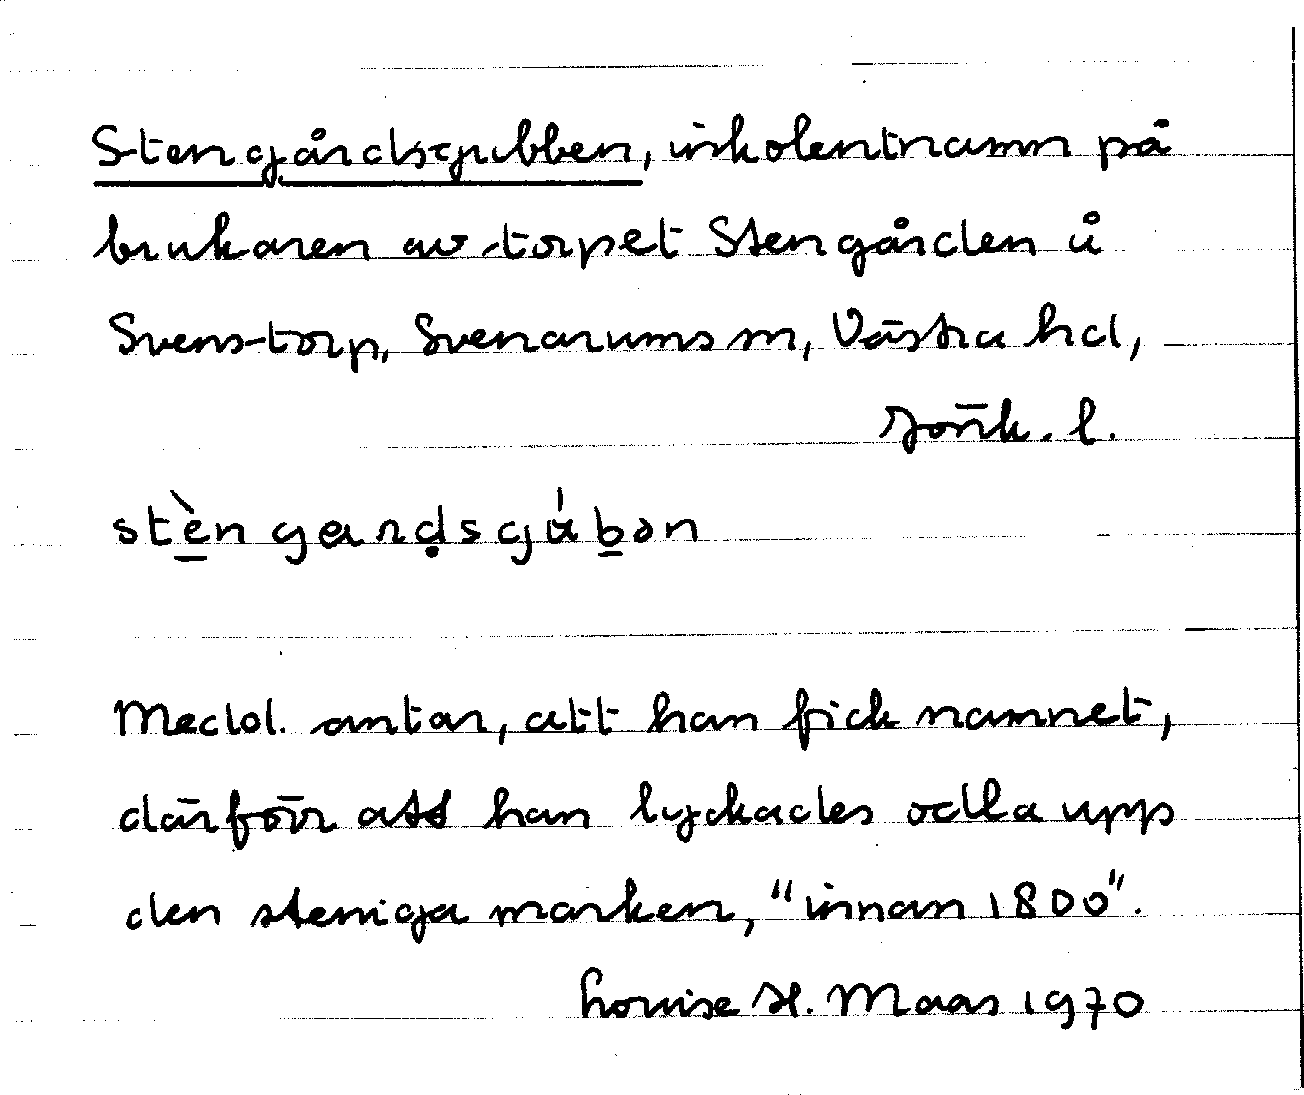 Stengårdsgubben, inkolentnamn på
brukaren av torpet Stengården i
Svenstorp, Svenarums sn, Västra hd,
Jönk. l.
stèngardsgúbən
Meddl. antar, att han fick namnet,
därför att han lyckades odla upp
den steniga marken, "innan 1800".
Louise H. Maas 1970